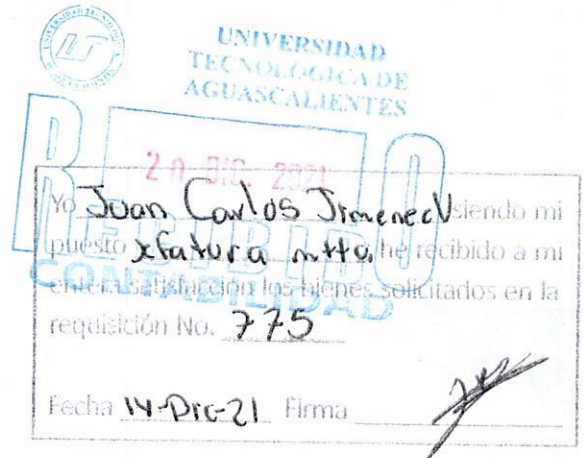 UNIVERSIDAD
TECNOLOGICA DE
AGUASCALIENTES
RECIBIDO
20 DIC. 2021
CONTABILIDAD
Yo Juan Carlos Jimenec V siendo mi
puesto xfatura mtto, he recibido a mi
entera satisfacción los bienes solicitados en la
requisición No. 775
Fecha 14-Dic-21 Firma